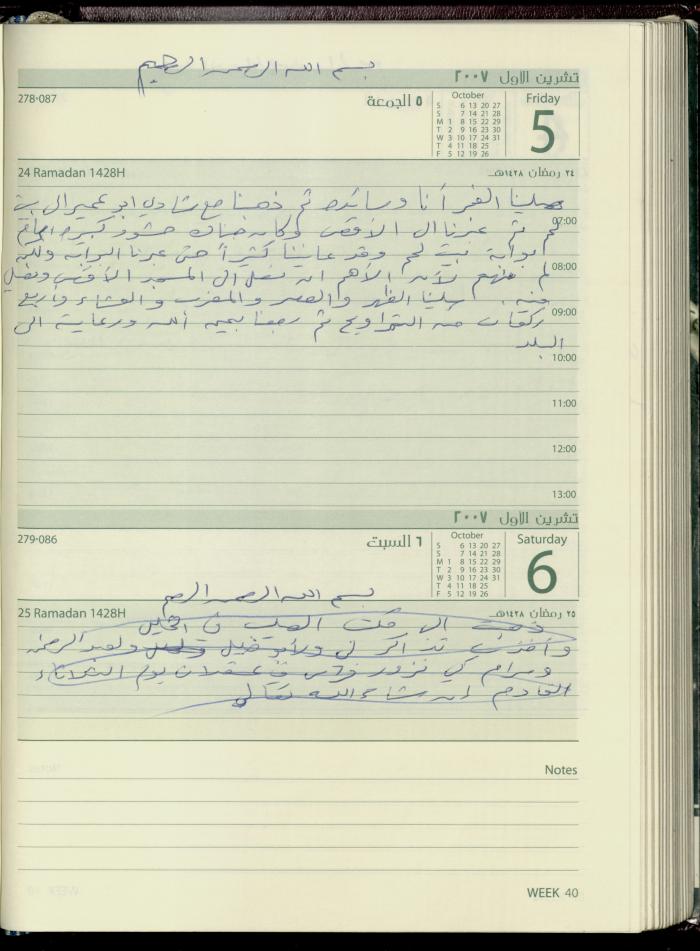 بسم الله الرحمن الرحيم
تشرين الاول ٢٠٠٧
278-087
٥ الجمعة
October
S 6 13 20 27
S 7 14 21 28
M 1 8 15 22 29
T 2 9 16 23 30
W 3 10 17 24 31
T 4 11 18 25
F 5 12 19 26
Friday
5
24 Ramadan 1428H
٢٤ رمضان ١٤٢٨هـ
صلينا الفجر أنا وسائده ثم ذهبنا مع شادي ابو عمير الى بيت
07:00
لحم ثم عبرنا الى الأقصى وكان هناك حشود كبيرة امام
بوابة بيت لحم وقد عانينا كثيراً حتى عبرنا البوابة ولكن
08:00
لم نهتم لأن الأهم ان نصل الى المسجد الأقصى ونصلي
فيه. صلينا الظهر والعصر والمغرب والعشاء واربع
09:00
ركعات من التراويح ثم رجعنا بحمد الله ورعايته الى
البلد
10:00
11:00
12:00
13:00
تشرين الاول ٢٠٠٧
279-086
٦ السبت
October
S 6 13 20 27
S 7 14 21 28
M 1 8 15 22 29
T 2 9 16 23 30
W 3 10 17 24 31
T 4 11 18 25
F 5 12 19 26
Saturday
6
بسم الله الرحمن الرحيم
25 Ramadan 1428H
٢٥ رمضان ١٤٢٨هـ
ذهبت الى مكتب الصليب في الخليل
وأخذت تذاكر لي ولأبو ولعبد الرحمن
ومرام كي نزور في عسقلان يوم الثلاثاء
القادم إن شاء الله تعالى
Notes
WEEK 40